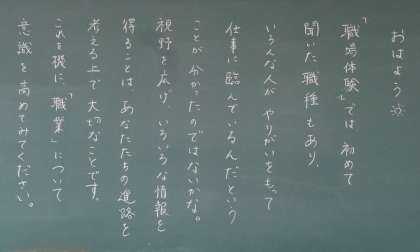 おはよう
「職場体験」では初めて
聞いた職種もあり、
いろんな人がやりがいをもって
仕事に臨んでいるんだという
ことが分かったのではないかな。
視野を広げ、いろいろな情報を
得ることは、あなたたちの進路を
考える上で大切なことです。
これを機に、「職業」について
意識を高めてみてください。